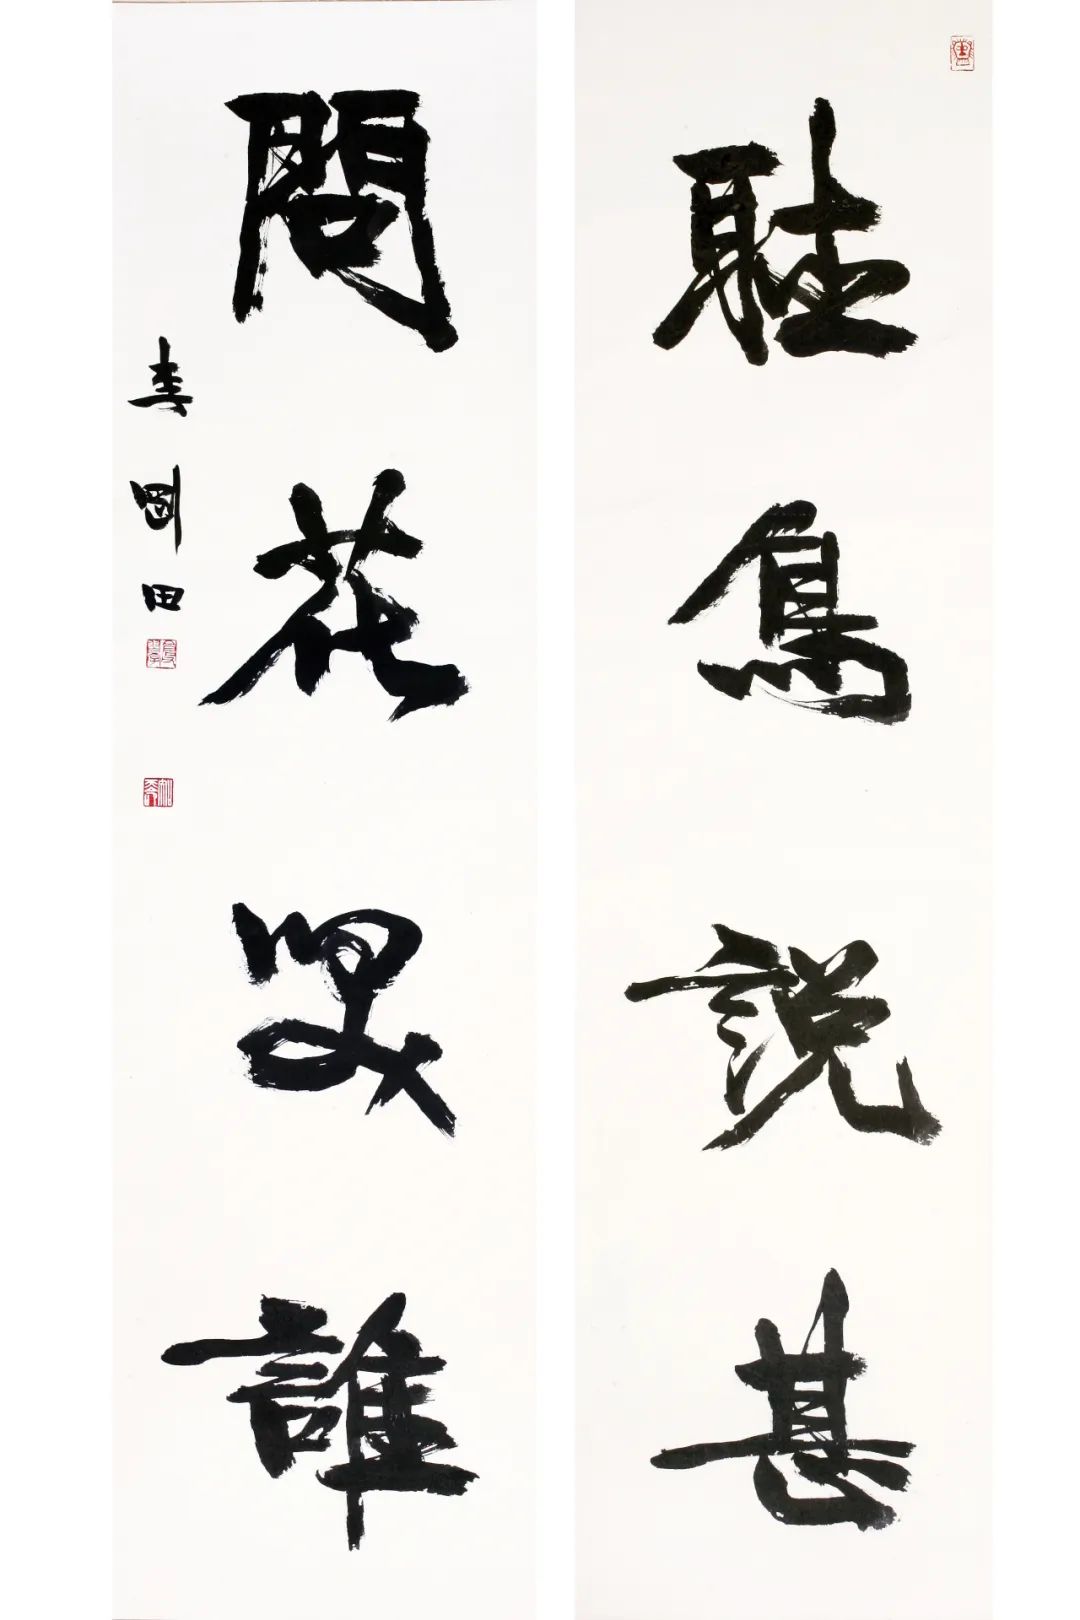 聽鳥説甚
問花笑誰
李剛田